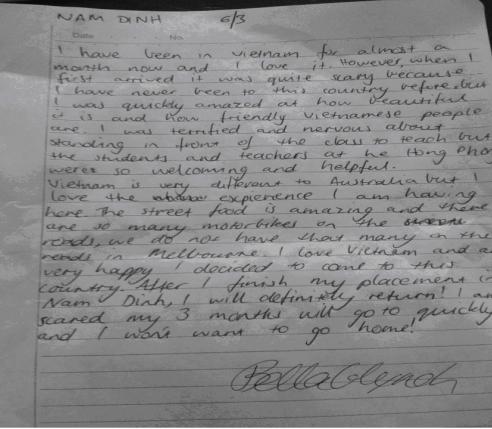 NAM DINH 6/3
Date No.
I have been in Vietnam for almost a
month now and I love it. However, when I
first arrived it was quite scary because
I have never been to this country before but
I was quickly amazed at how beautiful
it is and how friendly Vietnamese people
are. I was terrified and nervous about
standing in front of the class to teach but
the students and teachers at he Hong Phong
were so welcoming and helpful.
Vietnam is very different to Australia but I
love the experience I am having
here. The street food is amazing and there
are so many motorbikes on the
roads, we do not have that many on the
roads in Melbourne. I love Vietnam and a
very happy I decided to come to this
country. After I finish my placement in
Nam Dinh, I will definitely return! I am
scared my 3 months will go to quickly
and I won't want to go home!
Bella